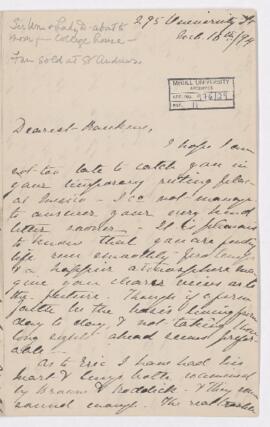 Sir Wm & Lady D- about to
move from College house -
Farm sold at St Andrews
295 University St
Oct. 16th/94
McGILL UNIVERSITY
ARCHIVES
ACC. NO.
REF.
Dearest
I hope I am
not too late to catch you in
your temporary resting place
at I did not manage
to answer your very kind
letter sooner - It is pleasant
to know that you are finding
life run smoothly
& a happier atmosphere may
give you clearer views as to
the future. Though if a firm
faith in the hour's living from
day to day, & not taking
long sight ahead seems
able -
As to Eric I have had his
heart & lungs both examined
by & Roddick - & they are
sound enough. The real